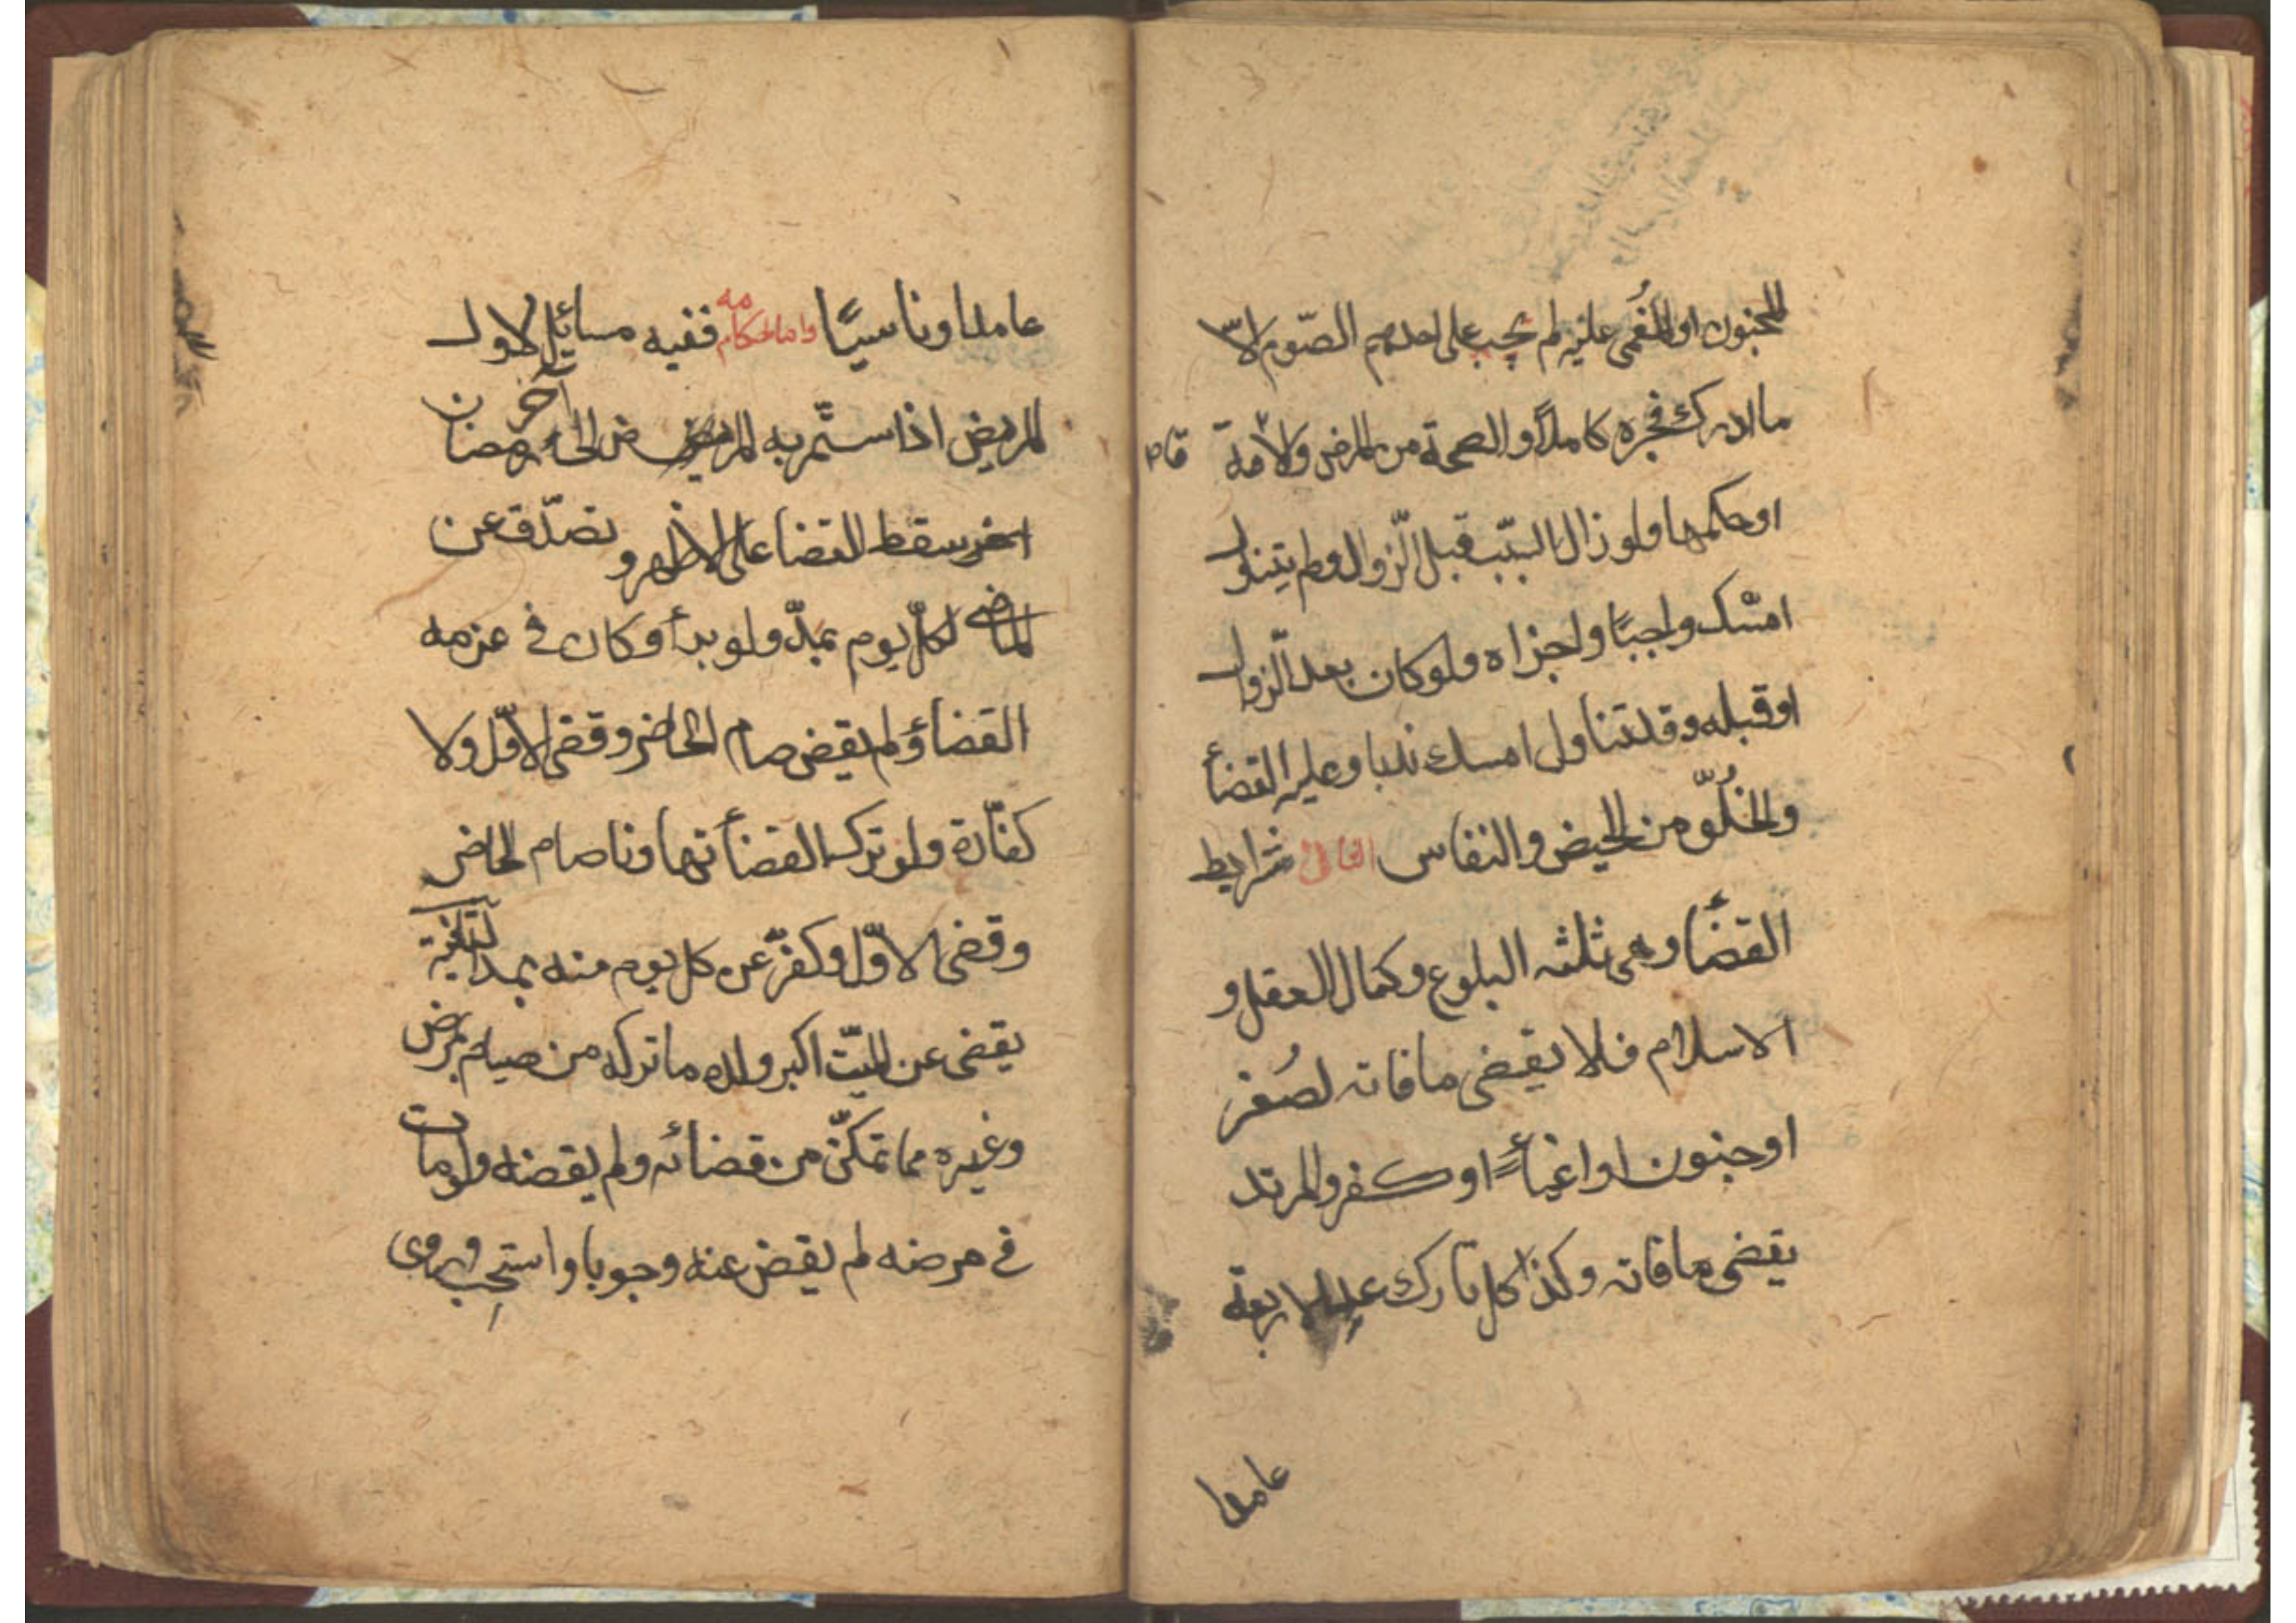 المجنون او المُغمى عليه لم يجب على احدهم الصّوم الا
ما ادرك فجره كاملاً والصحة من المرض والاقامة
او حكمها ولو زال السّبب قبل الزّوال ولم يتناول
امسك واجبًا واجزاه ولو كان بعد الزّوال
او قبله وقد تناول امسك ندبا وعليه القضأ
والخُلّو من الحيض والنفاس الثانى شرايط
القضأ وهى ثلثه البلوغ وكمال العقل و
الاسلام فلا يقضى ما فاته لصُغر
او جنون او اغمأ او كفر والمرتد
يقضى ما فاته وكذا كل تارك عدا الاربعة
عامدا
عامدا او ناسيًا واما احكامه ففيه مسائل الاول
المريض اذا استمّر به المرض الى رمضان آخر
سقط القضا على الاظهر وتصدّق عن
الماضى لكلّ يوم بمدّ ولو برأ وكان فى عزمه
القضأ ولم يقض صام الحاضر وقضى الاوّل ولا
كفّارة ولو ترك القضأ تهاونا صام الحاضر
وقضى الاوّل وكفّر عن كل يوم منه بمد الثانية
يقضى عن الميّت اكبر ولده ما تركه من صيام بمرض
وغيره مما تمكّن من قضائه ولم يقضه ولو مات
فى مرضه لم يقض عنه وجوبا واستحب وروى